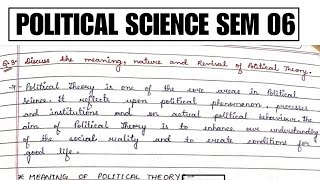 POLITICAL SCIENCE SEM 06
Q.3- Discuss the meaning, nature and Revival of Political Theory.
→ Political Theory is one of the core areas in Political
Science. It reflects upon political phenomenon, processes
and institutions and on actual political behaviour. The
aim of Political Theory is to enhance our understanding
of the social reality and to create conditions for
good life.
* MEANING OF POLITICAL THEORY